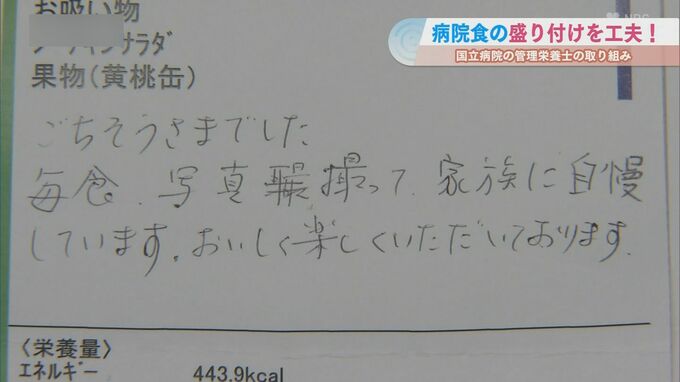 病院食の盛り付けを工夫！
国立病院の管理栄養士の取り組み
お吸い物
果物(黄桃缶)
ごちそうさまでした
毎食、写真撮って、家族に自慢
しています。おいしく楽しくいただいております。
〈栄養量〉
ｴﾈﾙｷﾞｰ 443.9kcal